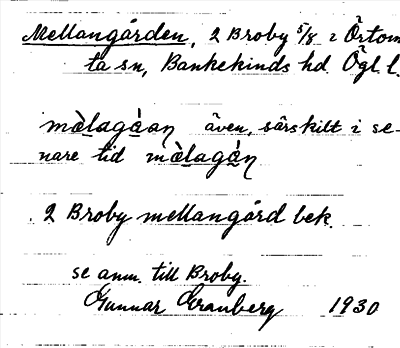 Mellangården, 2 Broby 5/8 i Örtom
ta sn, Bankekinds hd. Ögl. l.
mὰlagáaη även, särskilt i se-
nare tid mὰlagáη
2 Broby mellangård bek.
se anm. till Broby.
Gunnar Cranberg 1930